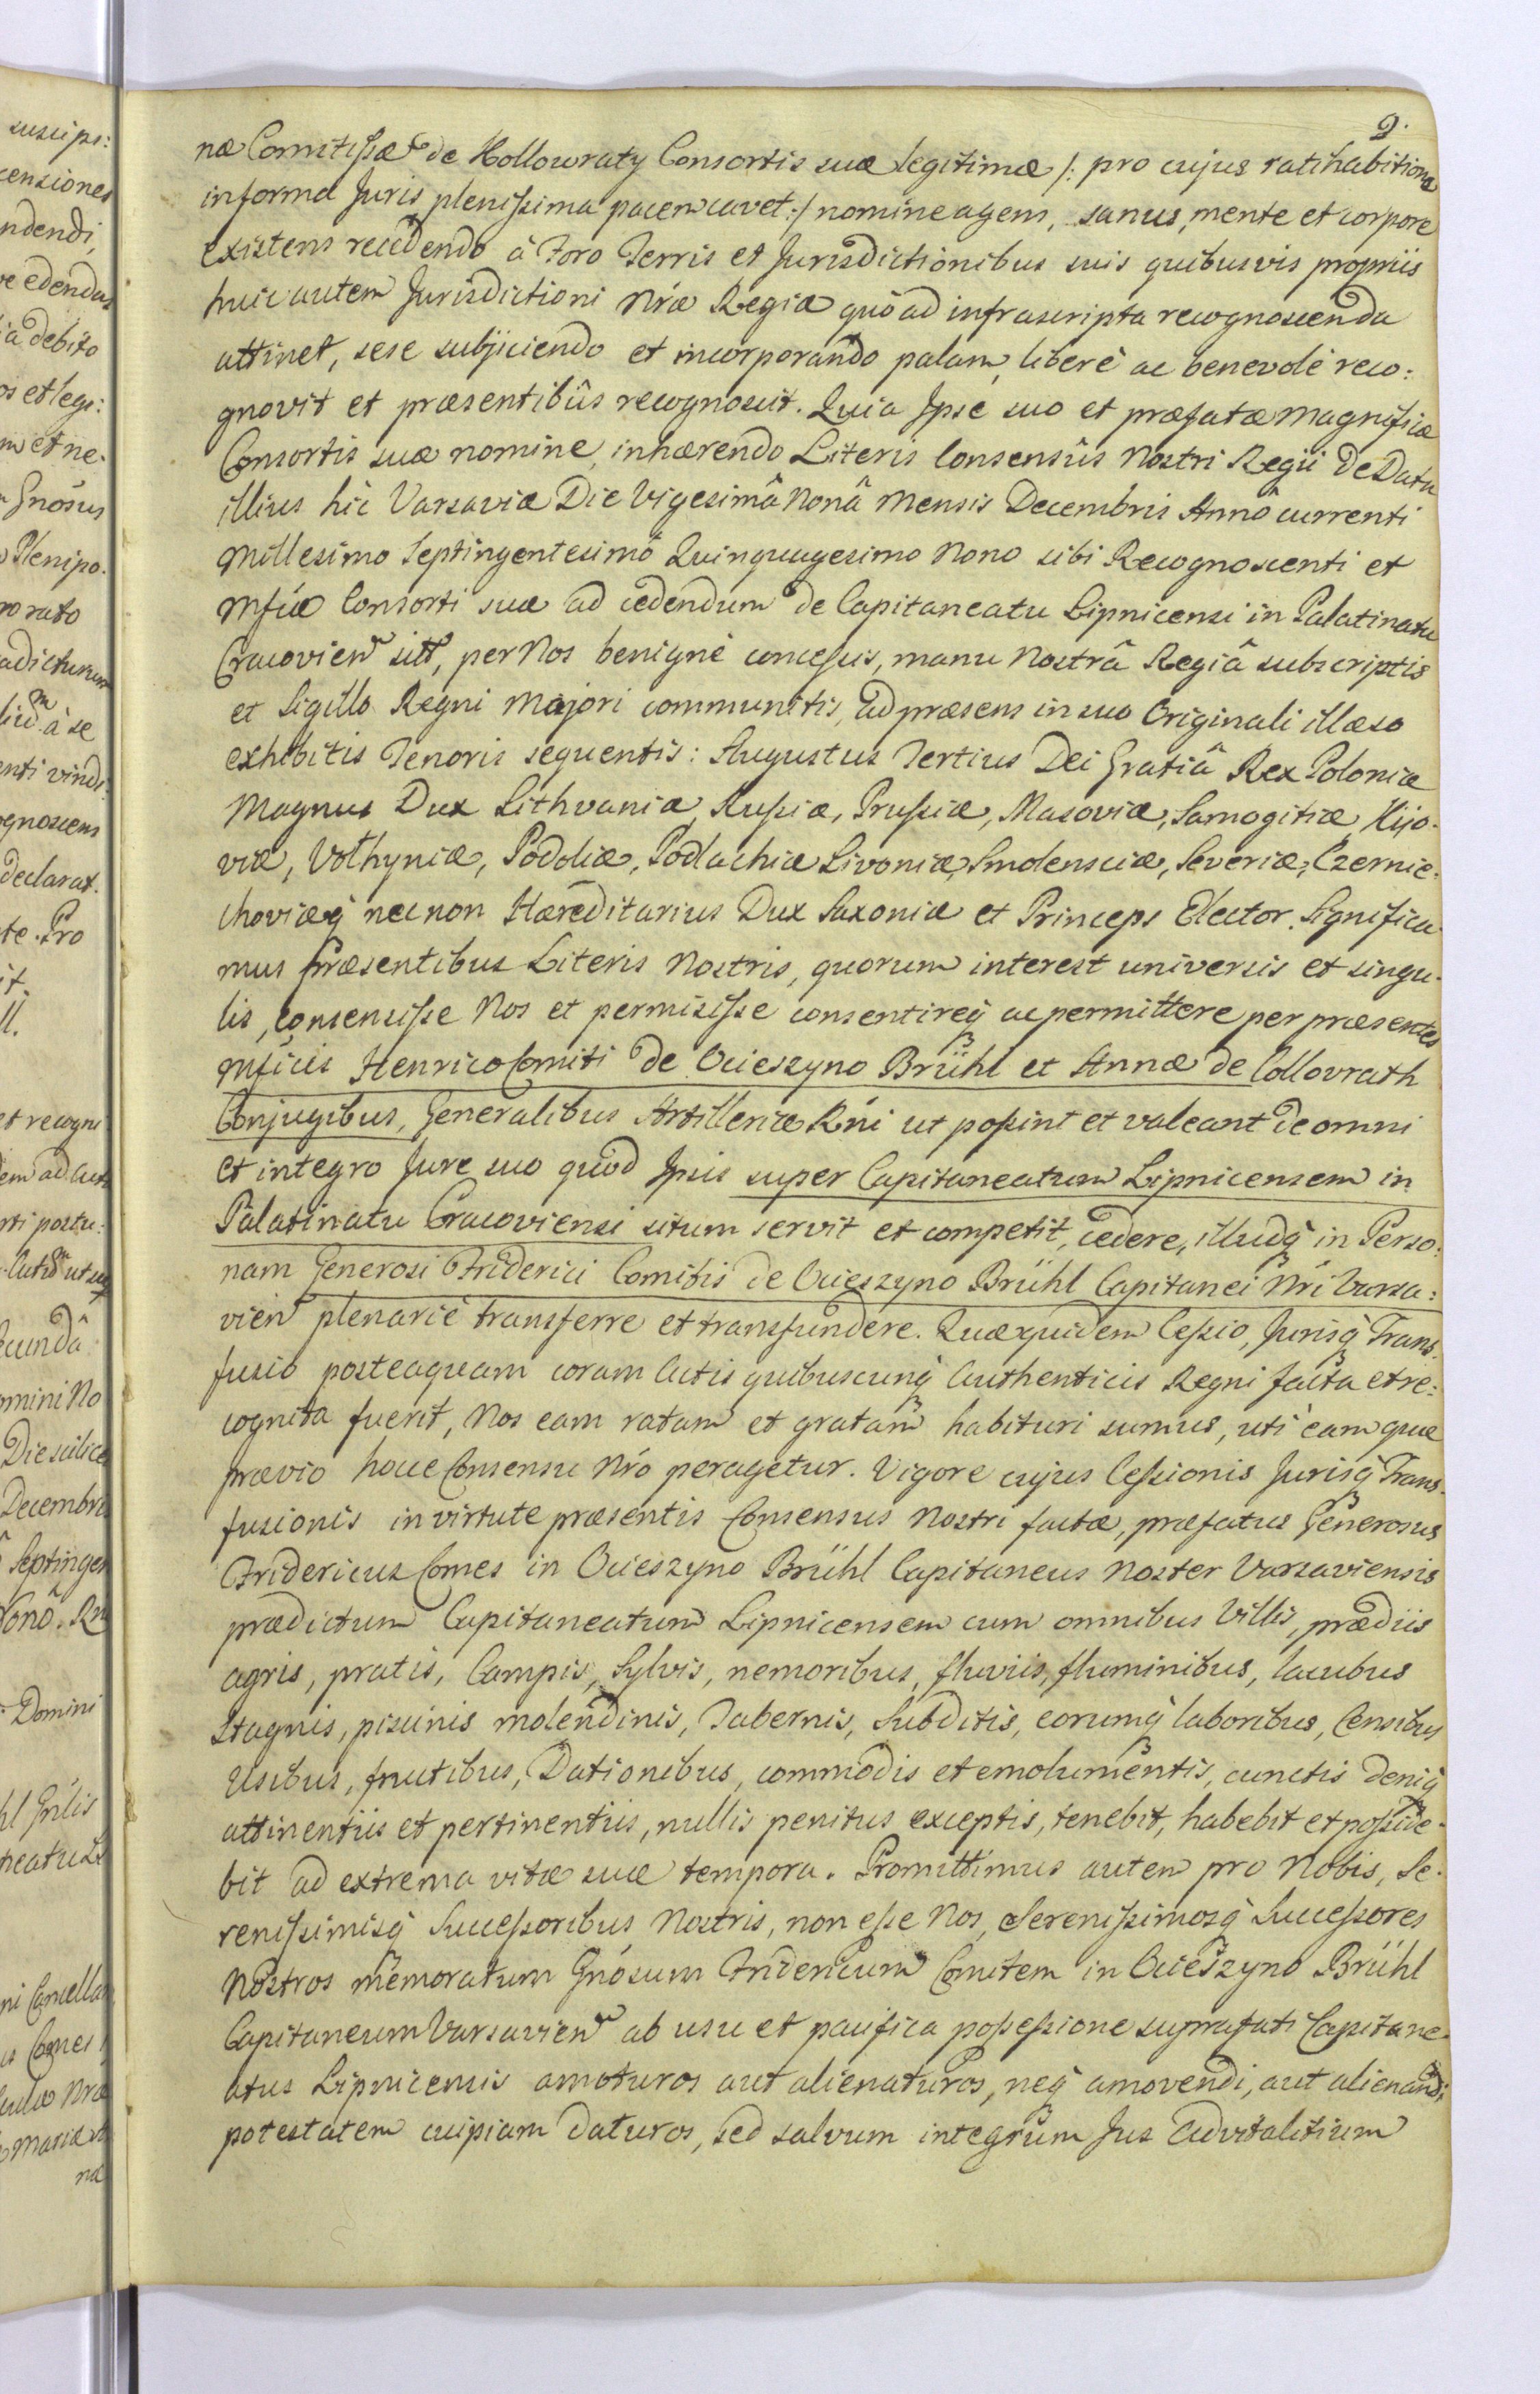 suscips:
censiones
ndendi,
ve edendas
ia debito
os et legi:
m et ne.
Gnosus
Plenipo.
ro rato
adicturum
à se
enti vindi:
ognoscens
declarat.
te. Pro
it.
ll.
et recogni
em ad acta
rti postu:
ecunda
omini No
Die scilice
Decembris
Septingen
Nonô. Rn
Domini
hl Gnlis
neatu Li
ni Cancella
us Comes
Maria
næ
9.
næ Comitissæ de Kollowraty Consortis suæ legitimæ /: pro cujus ratihabitione
in forma Juris plenissima pacem cavet :/ nomine agens, sanus, mente et corpore
existens recedendo à Foro Terris et Jurisdictionibus suis quibusvis propriis
huic autem Jurisdictioni Nræ Regiæ quò ad infrascripta recognoscenda
attinet, sese subjiciendo et incorporando palam, liberè ac benevolè reco:
gnovit et præsentibûs recognoscit. Quia Ipse suo et præfatæ Magnificæ
Consortis suæ nomine, inhærendo Literis Consensûs Nostri Regii de Data
illius hìc Varsaviæ Die Vigesimâ Nonâ Mensis Decembris Annô currenti
Millesimo Septingentesimô Quinquagesimo Nono sibi Recognoscenti et
Mficæ Consorti suæ ad cedendum de Capitaneatu Lipnicensi in Palatinatu
Cracovien sito, per Nos benignè concessis, manu Nostrâ Regiâ subscriptis
et Sigillo Regni Majori communitis, ad præsens in suo Originali illæso
exhibitis Tenoris sequentis: Augustus Tertius Dei Gratiâ Rex Poloniæ
Magnus Dux Lithvaniæ, Russiæ, Prussiæ, Masoviæ, Samogitiæ, Kijo-
viæ, Volhyniæ, Podoliæ, Podlachiæ Livoniæ, Smolensciæ, Severiæ, Czernie-
choviæq nec non Hæreditarius Dux Saxoniæ et Princeps Elector. Significa-
mus Præsentibus Literis Nostris, quorum interest universis et singu-
lis, consensisse Nos et permisisse consentireq ac permittere per præsentes
Mficis Henrico Comiti de Ocieszyno Brühl et Annæ de Collovrath
Conjugibus, Generalibus Artilleriæ Rni ut possint et valeant de omni
et integro Jure suo quod Ipsis super Capitaneatum Lipnicensem in
Palatinatu Cracoviensi situm servit et competit, cedere, illudq in Perso:
nam Generosi Friderici Comitis de Ocieszyno Brühl Capitanei Nri Varsa:
vien plenariè transferre et transfundere. Quæquidem Cessio, Jurisq Trans-
fusio posteaquam coram Actis quibuscunq Authenticis Regni facta et re:
cognita fuerit, Nos eam ratam et gratam habituri sumus, uti eam quæ
prævio hocce Consensu Nro peragetur. Vigore cujus Cessionis Jurisq Trans-
fusionis in virtute præsentis Consensus Nostri factæ, præfatus Generosus
Fridericus Comes in Ocieszyno Brühl Capitaneus Noster Varsaviensis
prædictum Capitaneatum Lipnicensem cum omnibus Villis, prædiis
agris, pratis, Campis, Sylvis, nemoribus, fluviis, fluminibus, lacubus
Stagnis, piscinis molendinis, Tabernis, Subditis, eorumq laboribus, Censibus
Usibus, fructibus, Dationibus, commodis et emolumentis, cunctis deniq
attinentiis et pertinentiis, nullis penitus exceptis, tenebit, habebit et posside-
bit ad extrema vitæ suæ tempora. Promittimus autem pro Nobis, Se-
renissimisq Successoribus Nostris, non esse Nos, Serenissimosq Successores
Nostros memoratum Gnosum Fridericum Comitem in Ocieszyno Brühl
Capitaneum Varsavien ab usu et pacifica possessione suprafati Capitane-
atus Lipnicensis amoturos aut alienaturos, neq amovendi, aut alienandi
potestatem cuipiam daturos, sed salvum integrum Jus Advitalitium